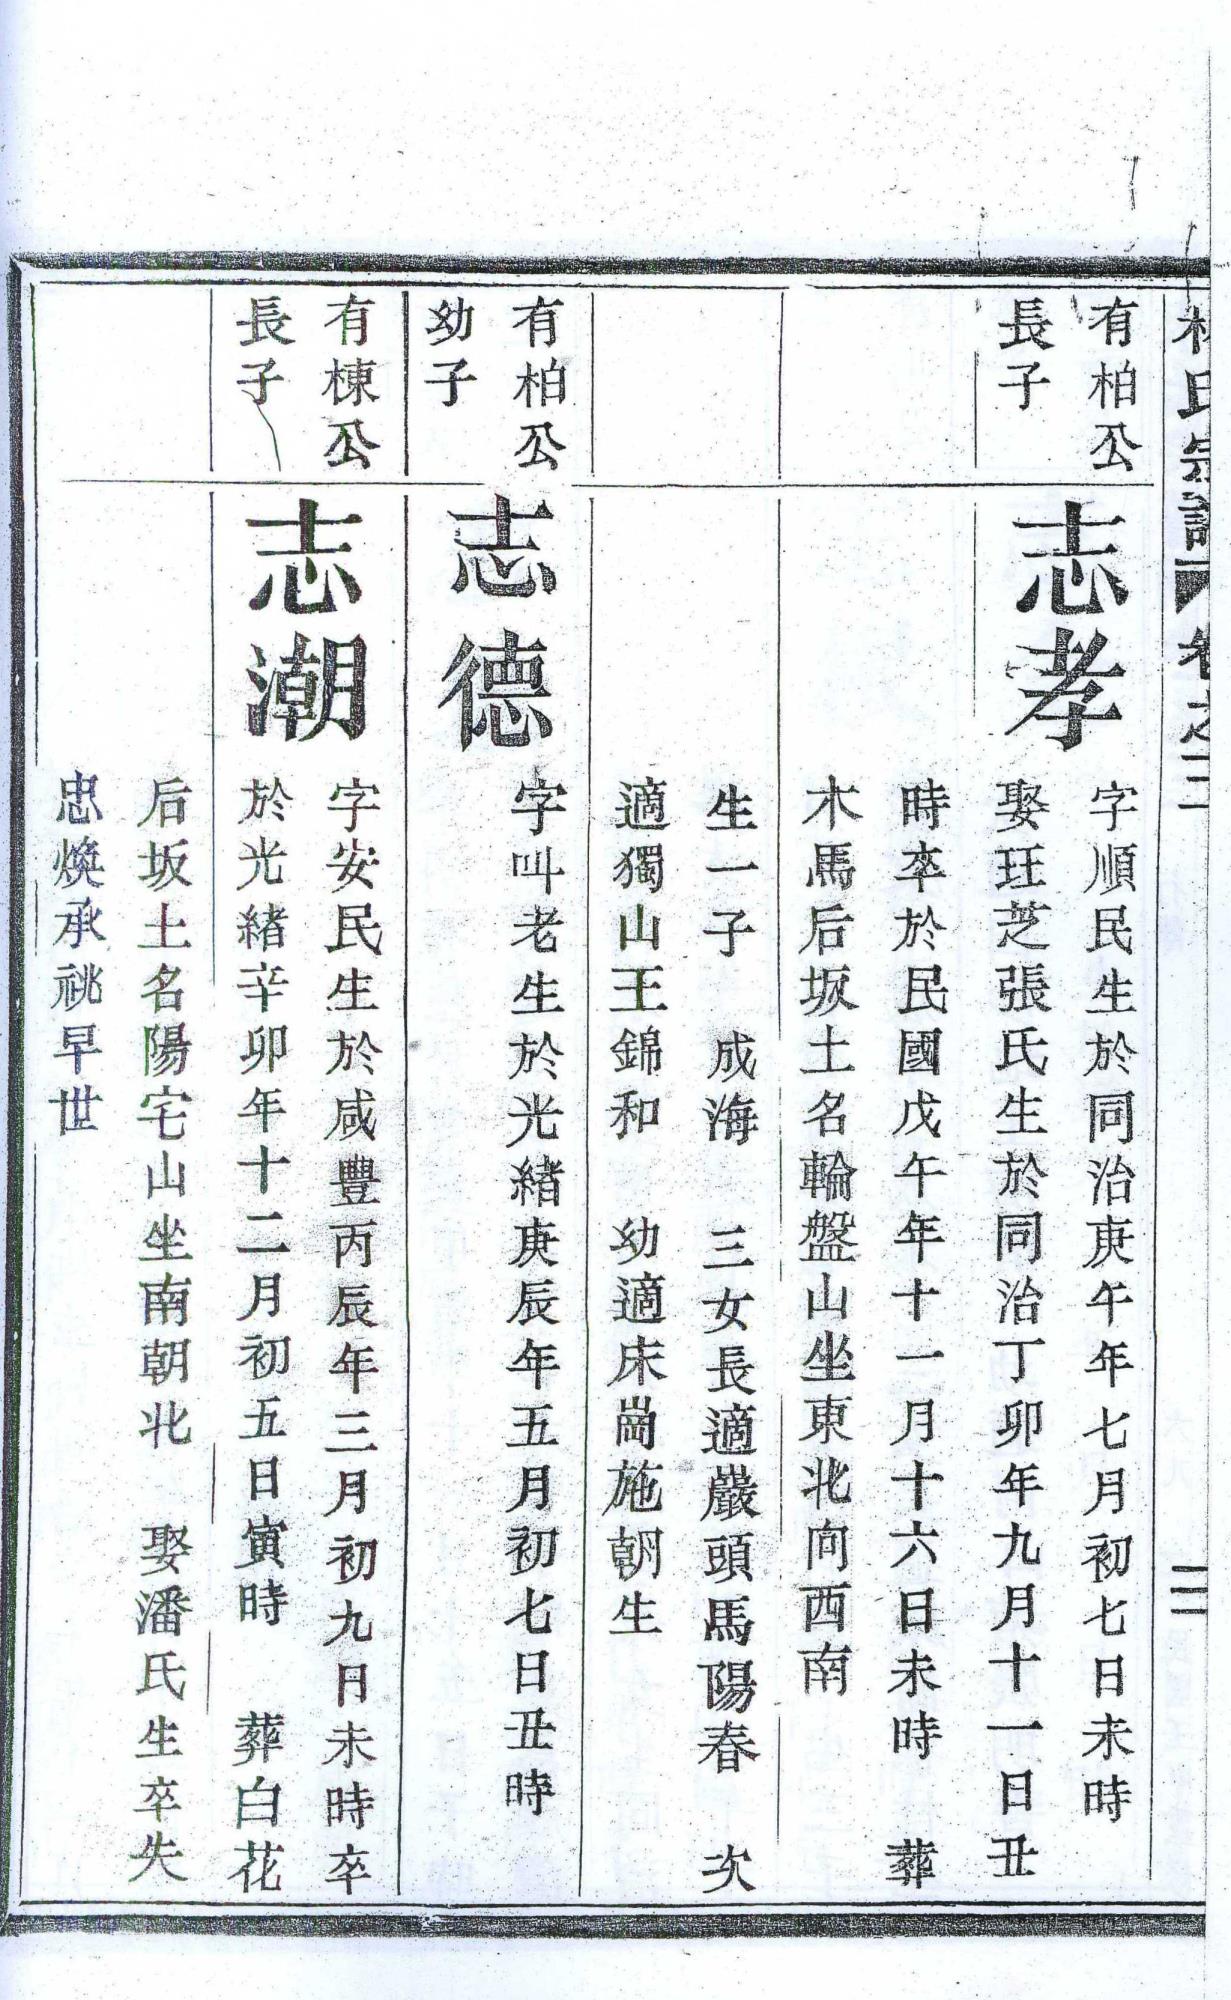 林氏宗譜 卷之二 二
有柏公
長子
志孝
字順民生於同治庚午年七月初七日未時
娶玨芝張氏生於同治丁卯年九月十一日丑
時卒於民國戊午年十一月十六日未時 葬
木馬后坂土名輪盤山坐東北向西南
生一子 成海 三女長適嚴頭馬陽春 次
適獨山王錦和 幼適床崗施朝生
有柏公
幼子
志德
字叫老生於光緒庚辰年五月初七日丑時
有棟公
長子
志潮
字安民生於咸豐丙辰年三月初九日未時卒
於光緒辛卯年十二月初五日寅時 葬白花
后坂土名陽宅山坐南朝北 娶潘氏生卒失
忠煥承祧早世